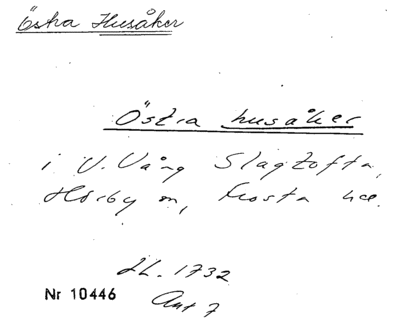 Östra Husåker
Östra husåker
i V. Vång Slagtofta,
Hörby sn, Frosta hd.
LL. 1732
Nr 10446
Akt 7